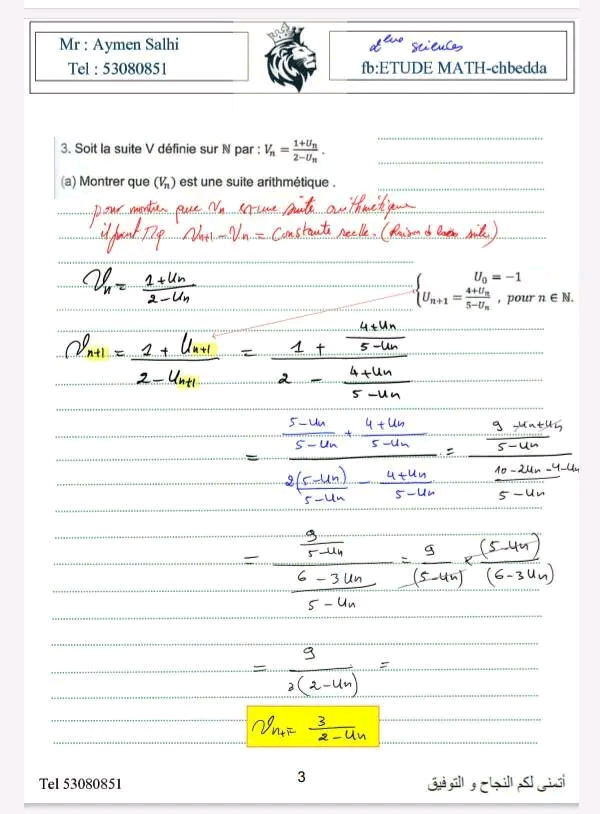 Mr : Aymen Salhi
Tel : 53080851
2ème sciences
fb:ETUDE MATH-chbedda
3. Soit la suite V définie sur ℕ par : Vₙ = (1+Uₙ)/(2−Uₙ) .
(a) Montrer que (Vₙ) est une suite arithmétique .
pour montrer que Vn est une suite arithmétique
il faut Mq Vn+1 − Vn = Constante réelle. (Raison de la suite)
Vn = (1+Un)/(2−Un)
{ U₀ = −1
Uₙ₊₁ = (4+Uₙ)/(5−Uₙ) , pour n ∈ ℕ.
Vn+1 = (1 + Un+1)/(2 − Un+1) = (1 + (4+Un)/(5−Un))/(2 − (4+Un)/(5−Un))
= ((5−Un)/(5−Un) + (4+Un)/(5−Un))/(2(5−Un)/(5−Un) − (4+Un)/(5−Un)) = ((9−Un+Un)/(5−Un))/((10−2Un−4−Un)/(5−Un))
= (9/(5−Un))/((6−3Un)/(5−Un)) = 9/(5−Un) × (5−Un)/(6−3Un)
= 9/(3(2−Un)) =
Vn+1 = 3/(2−Un)
Tel 53080851
3
أتمنى لكم النجاح و التوفيق